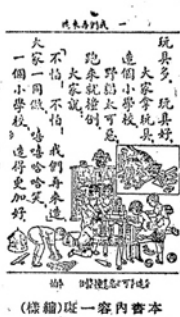 一 我們再來造
玩具多，玩具好，
大家拿玩具，
造個小學校。
野貓太可惡，
跑來就撞倒。
大家說，
「不怕，不怕，我們再來造。」
大家一同做，嘻嘻哈哈笑，
一個小學校，造得更加好。
本書內容一斑(縮樣)